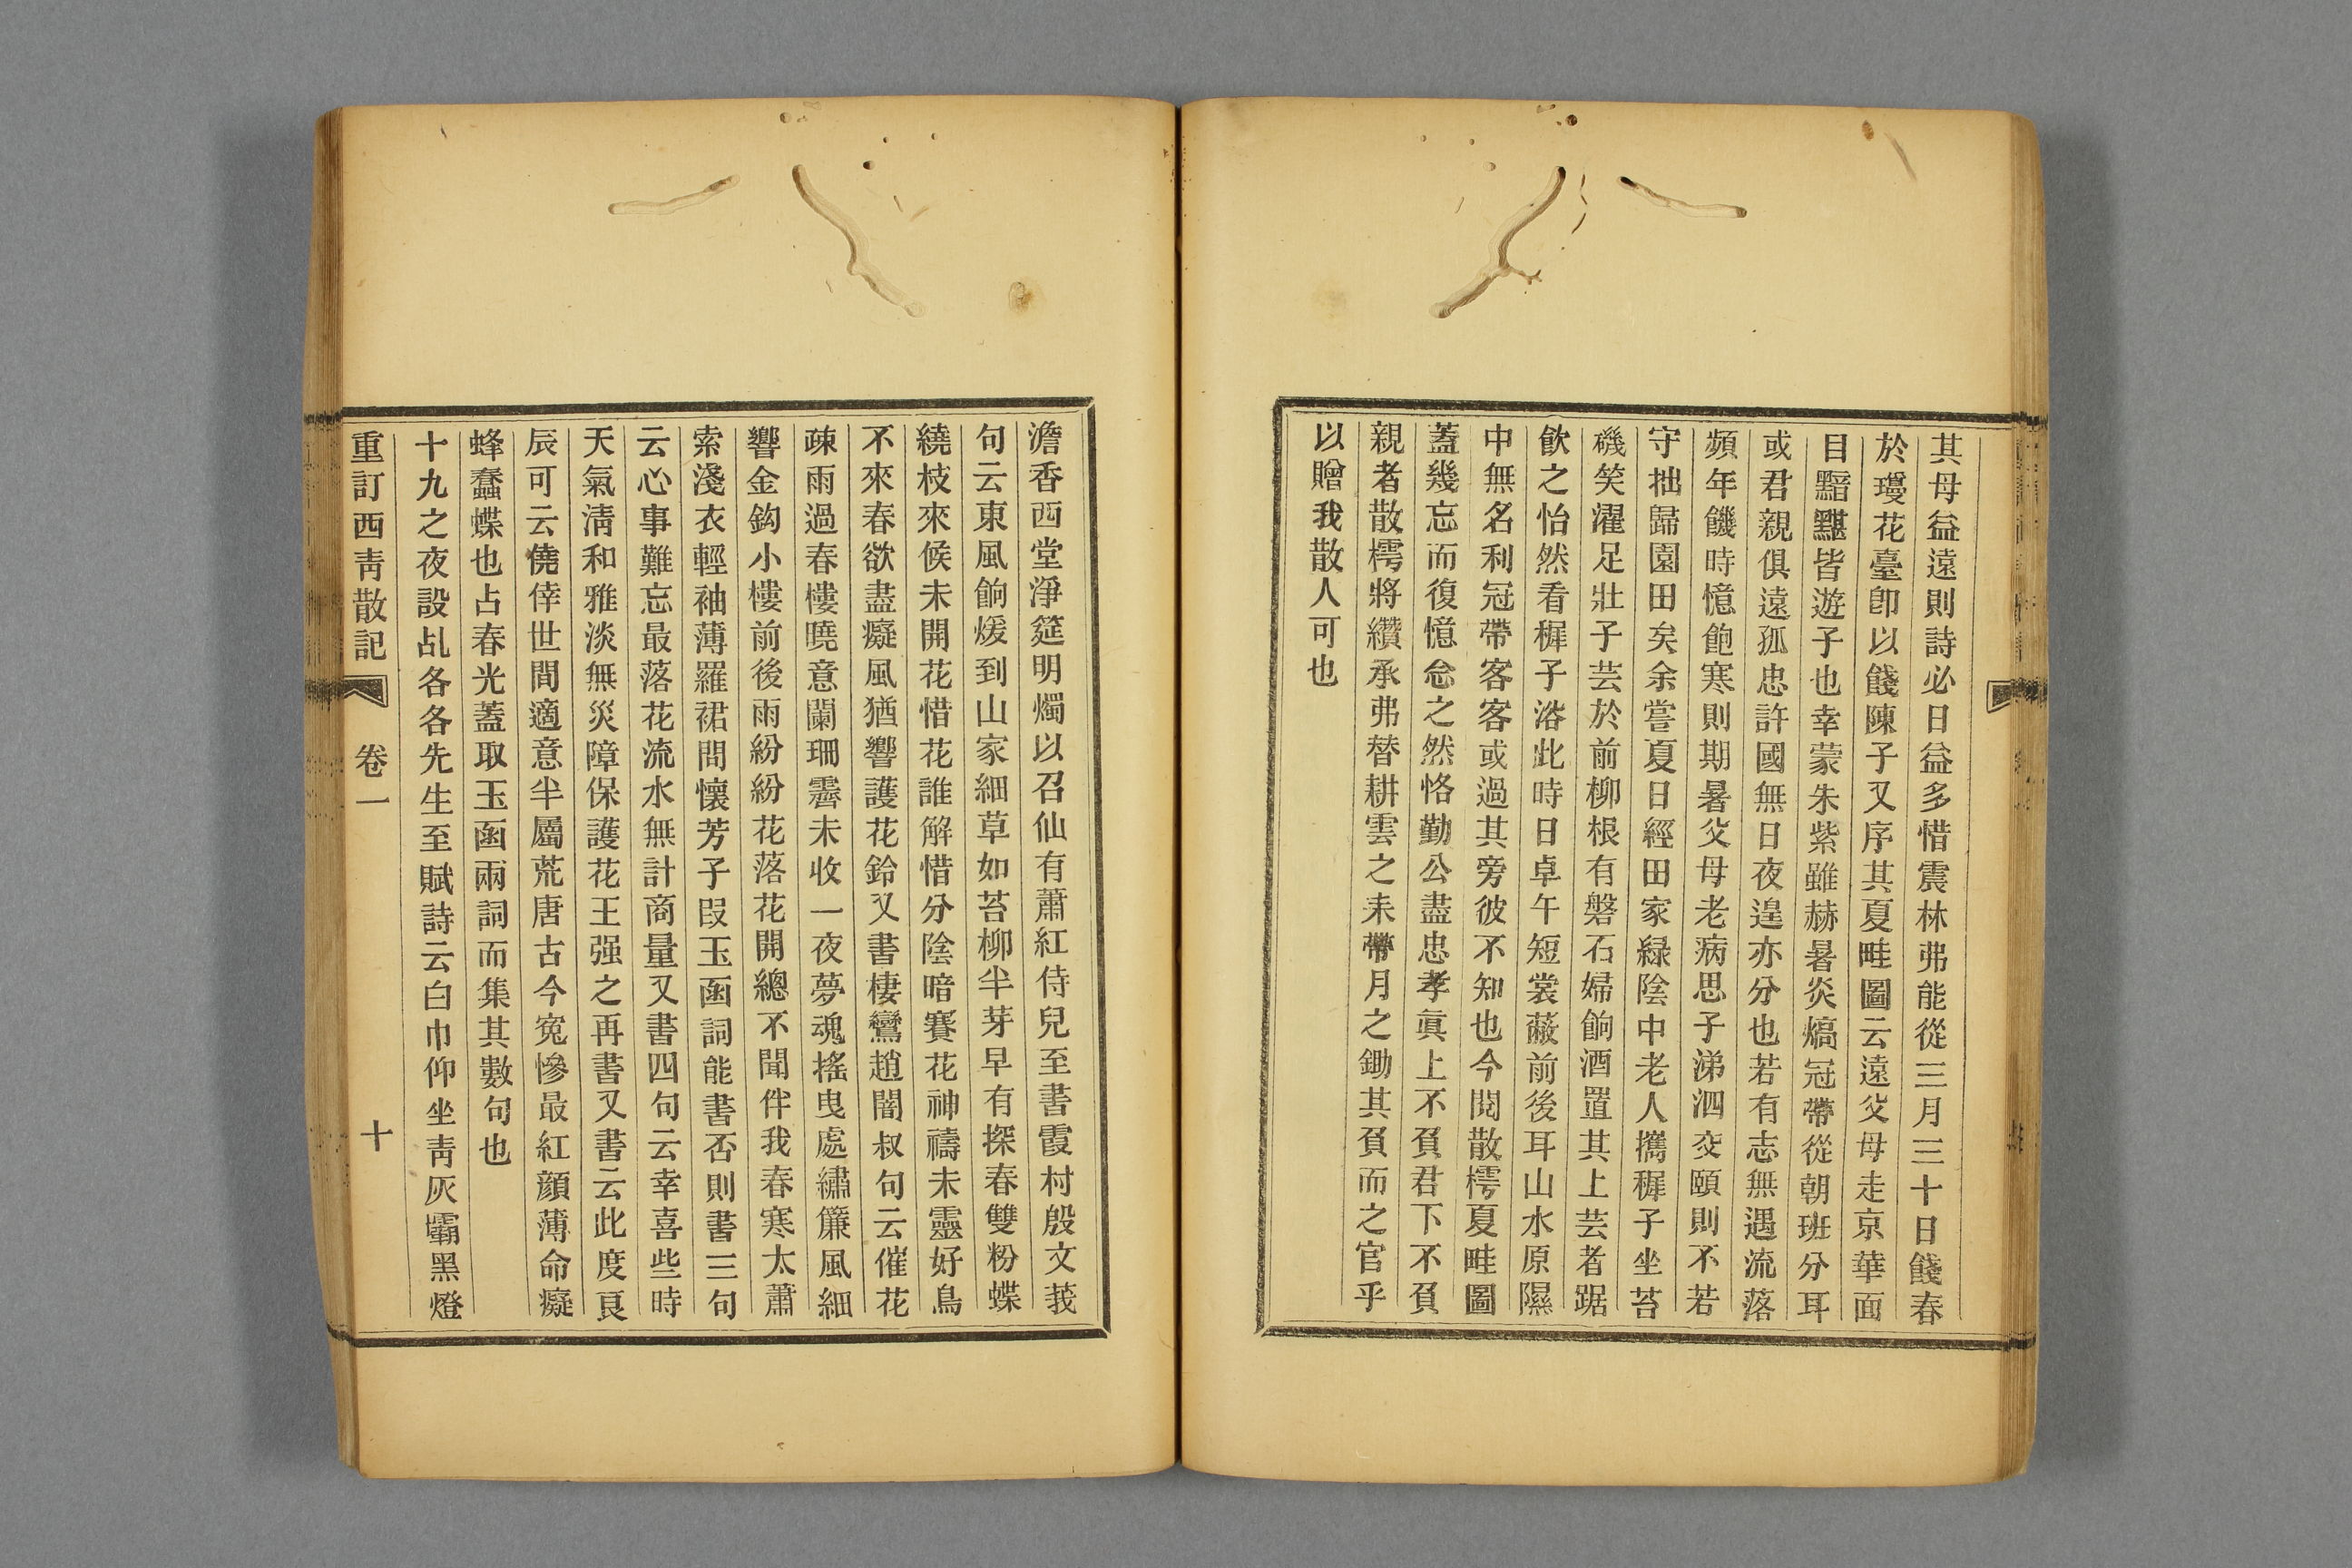 其母益遠則詩必日益多惜震林弗能從三月三十日餞春
於瓊花臺卽以餞陳子又序其夏畦圖云遠父母走京華面
目黯黮皆遊子也幸蒙朱紫雖赫暑炎熇冠帶從朝班分耳
或君親俱遠孤忠許國無日夜遑亦分也若有志無遇流落
頻年饑時憶飽寒則期暑父母老病思子涕泗交頤則不若
守拙歸園田矣余嘗夏日經田家緑陰中老人攜穉子坐苔
磯笑濯足壯子芸於前柳根有磐石婦餉酒置其上芸者踞
飮之怡然看穉子浴此時日卓午短裳蔽前後耳山水原隰
中無名利冠帶客客或過其旁彼不知也今閱散樗夏畦圖
蓋幾忘而復憶念之然恪勤公盡忠孝眞上不負君下不負
親者散樗將纘承弗替耕雲之耒帶月之鋤其負而之官乎
以贈我散人可也
澹香西堂淨筵明燭以召仙有蕭紅侍兒至書霞村殷文莪
句云東風餉煖到山家細草如苔柳半芽早有探春雙粉蝶
繞枝來候未開花惜花誰解惜分陰暗賽花神禱未靈好鳥
不來春欲盡癡風猶響護花鈴又書棲鸞趙闇叔句云催花
疎雨過春樓曉意闌珊霽未收一夜夢魂搖曳處繡簾風細
響金鈎小樓前後雨紛紛花落花開總不聞伴我春寒太蕭
索淺衣輕袖薄羅裙問懷芳子段玉函詞能書否則書三句
云心事難忘最落花流水無計商量又書四句云幸喜些時
天氣淸和雅淡無災障保護花王强之再書又書云此度良
辰可云僥倖世間適意半屬荒唐古今寃慘最紅顔薄命癡
蜂蠢蝶也占春光蓋取玉函兩詞而集其數句也
十九之夜設乩各各先生至賦詩云白巾仰坐靑灰壩黑燈
重訂西靑散記 卷一 十